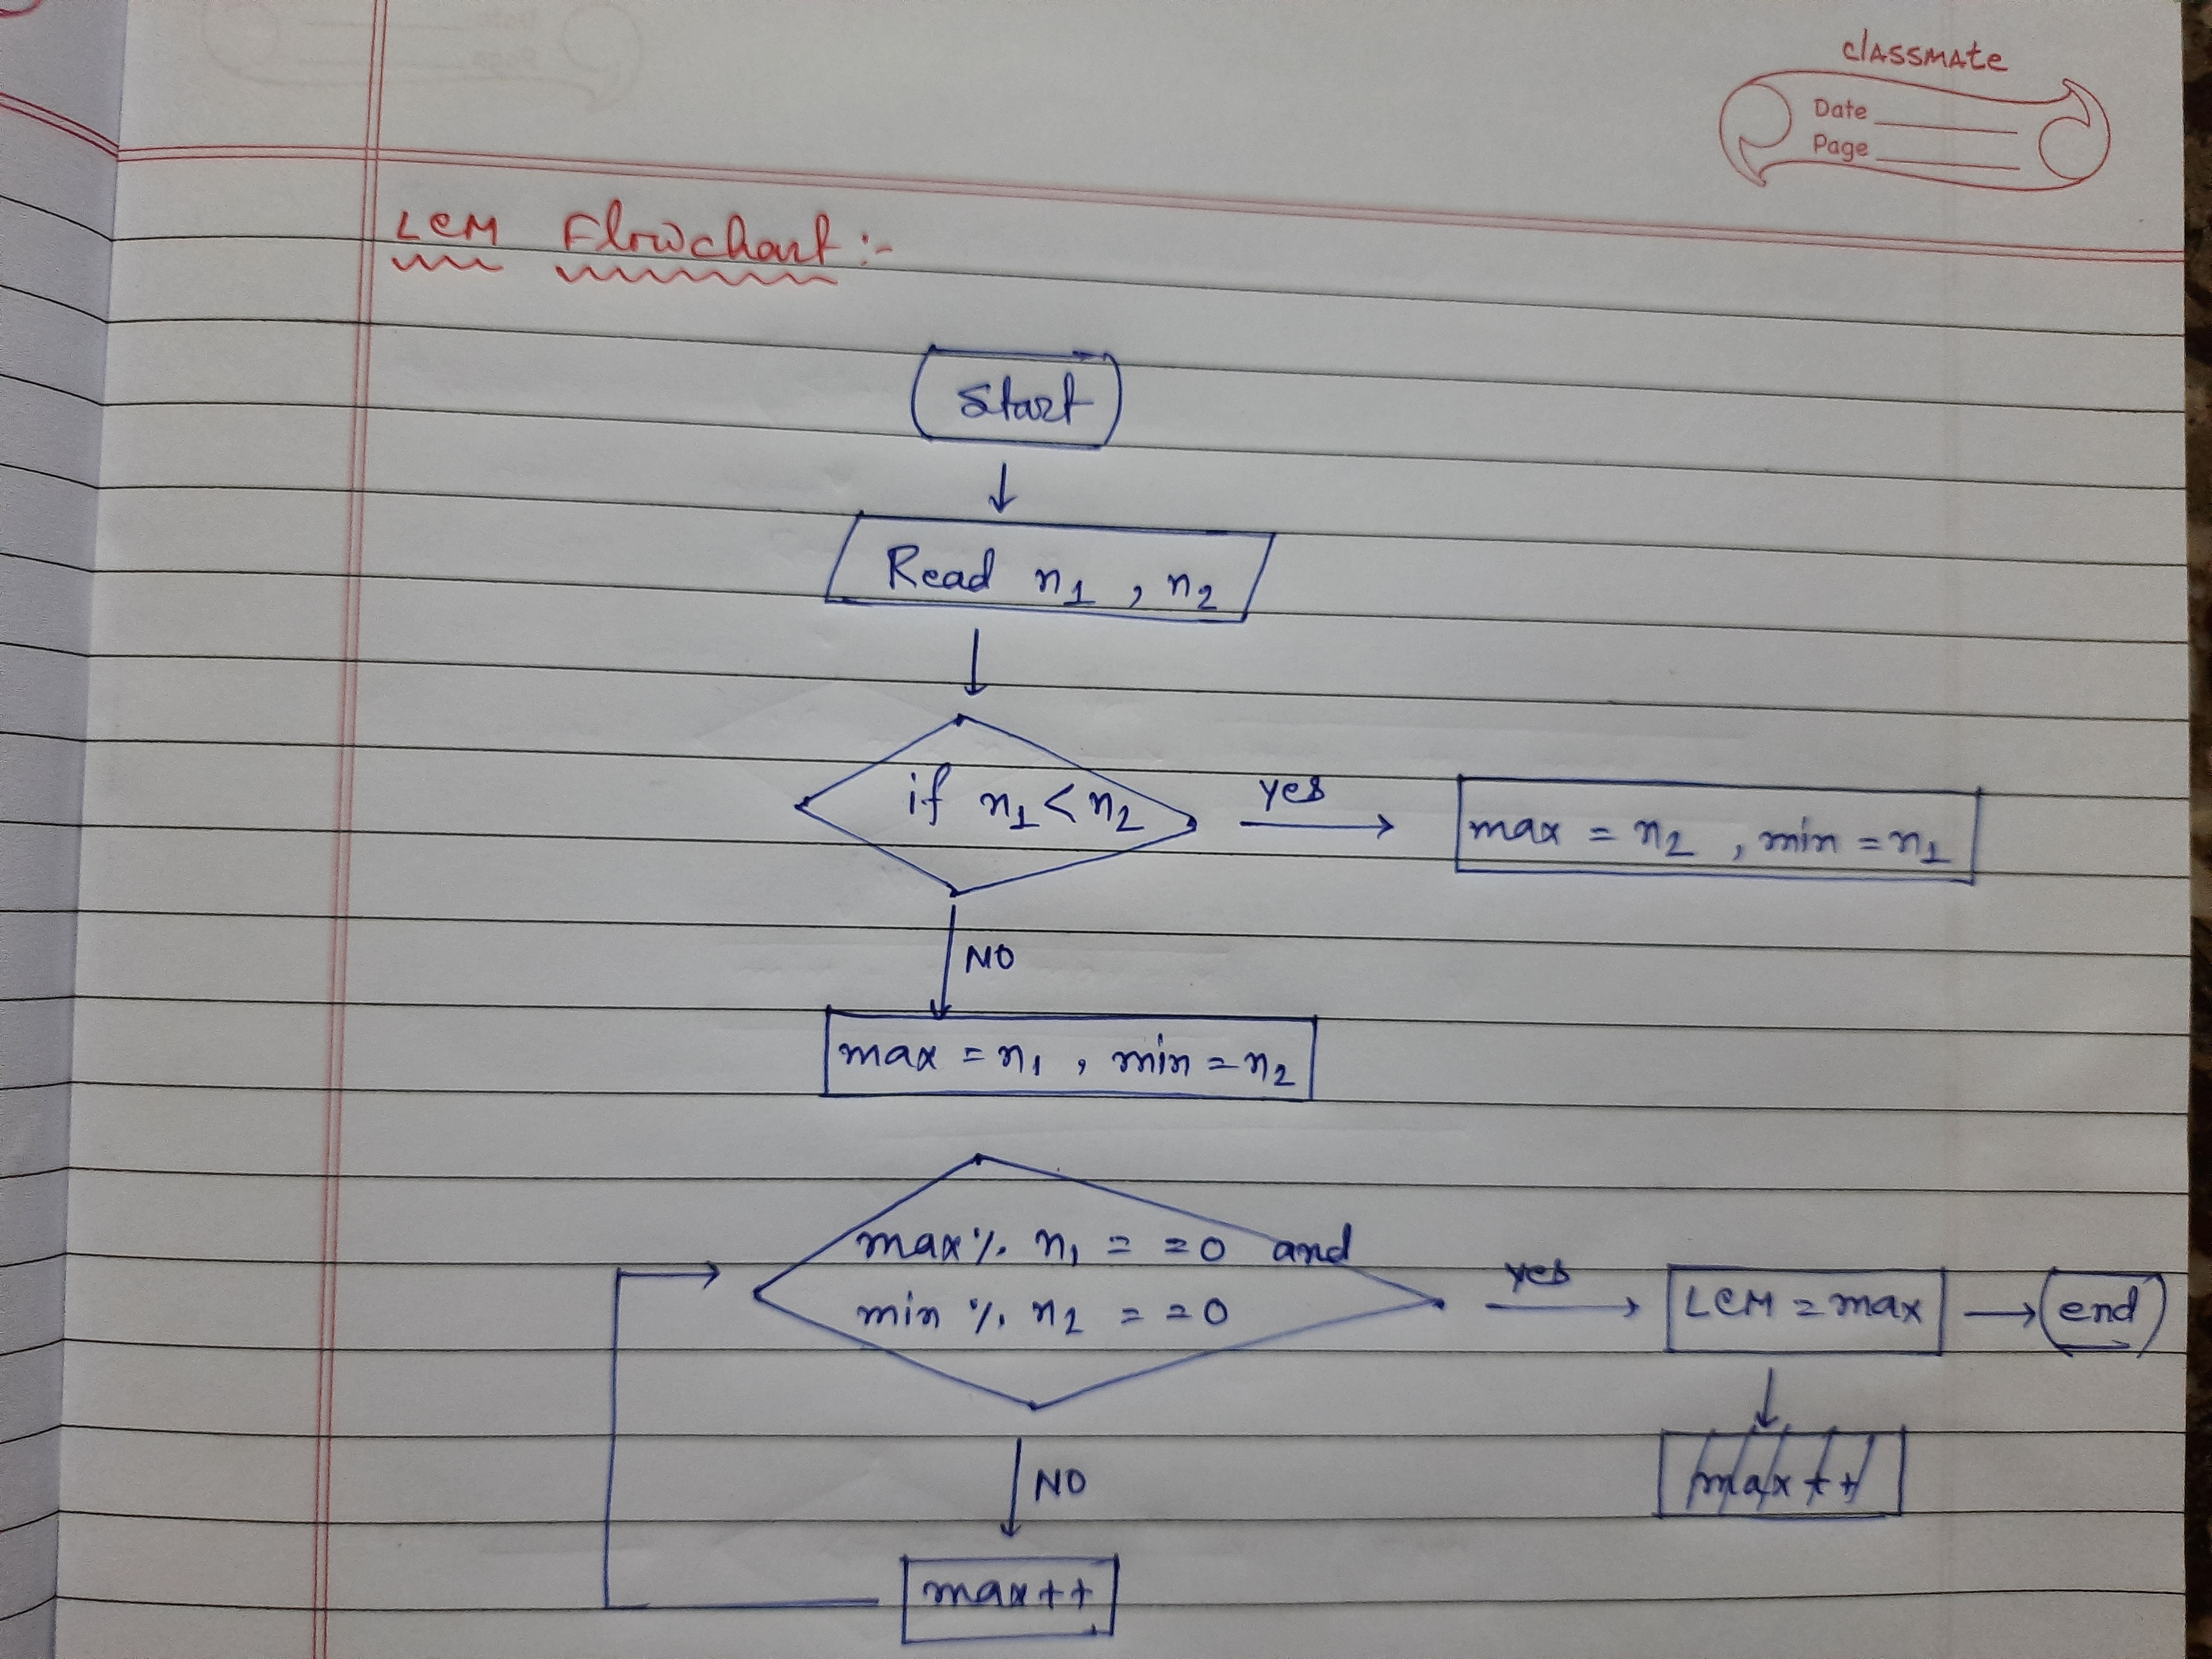 classmate
Date
Page
LCM Flowchart :-
Start
Read n1 , n2
if n1 < n2
yes
max = n2 , min = n1
NO
max = n1 , min = n2
max % n1 = = 0 and
min % n2 = = 0
yes
LCM = max
end
NO
max++
max++